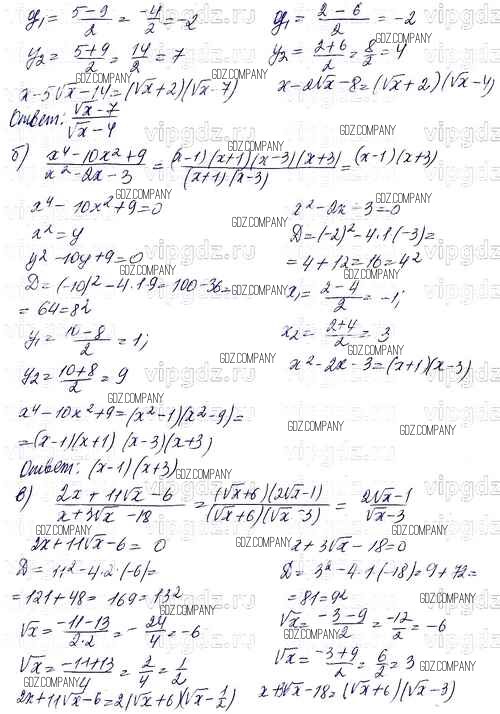 y₁ = (5-9)/2 = -4/2 = -2
y₁ = (2-6)/2 = -2
y₂ = (5+9)/2 = 14/2 = 7
y₂ = (2+6)/2 = 8/2 = 4
x-5√x-14=(√x+2)(√x-7)
x-2√x-8=(√x+2)(√x-4)
Ответ: (√x-7)/(√x-4)
б) (x⁴-10x²+9)/(x²-2x-3) = ((x-1)(x+1)(x-3)(x+3))/((x+1)(x-3)) = (x-1)(x+3)
x⁴-10x²+9=0
x²-2x-3=0
x²=y
D=(-2)²-4·1(-3)=
y²-10y+9=0
=4+12=16=4²
D=(-10)²-4·1·9=100-36=
x₁= (2-4)/2 = -1;
=64=8²
y₁= (10-8)/2 = 1;
x₂= (2+4)/2 = 3
y₂= (10+8)/2 = 9
x²-2x-3=(x+1)(x-3)
x⁴-10x²+9=(x²-1)(x²-9)=
=(x-1)(x+1)(x-3)(x+3)
Ответ: (x-1)(x+3)
в) (2x+11√x-6)/(x+3√x-18) = ((√x+6)(2√x-1))/((√x+6)(√x-3)) = (2√x-1)/(√x-3)
2x+11√x-6=0
x+3√x-18=0
D=11²-4·2·(-6)=
D=3²-4·1(-18)=9+72=
=121+48=169=13²
=81=9²
√x= (-11-13)/(2·2) = -24/4 = -6
√x= (-3-9)/2 = -12/2 = -6
√x= (-11+13)/4 = 2/4 = 1/2
√x= (-3+9)/2 = 6/2 = 3
2x+11√x-6=2(√x+6)(√x-1/2)
x+3√x-18=(√x+6)(√x-3)
vipgdz.ru
GDZ.COMPANY